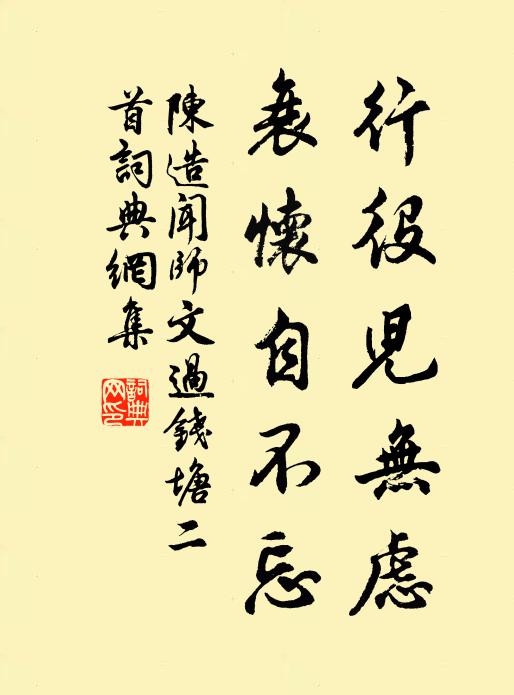 行役児無慮
衰懷自不忘
陳造聞師文過錢塘二
首詞典網集
詞典
网印